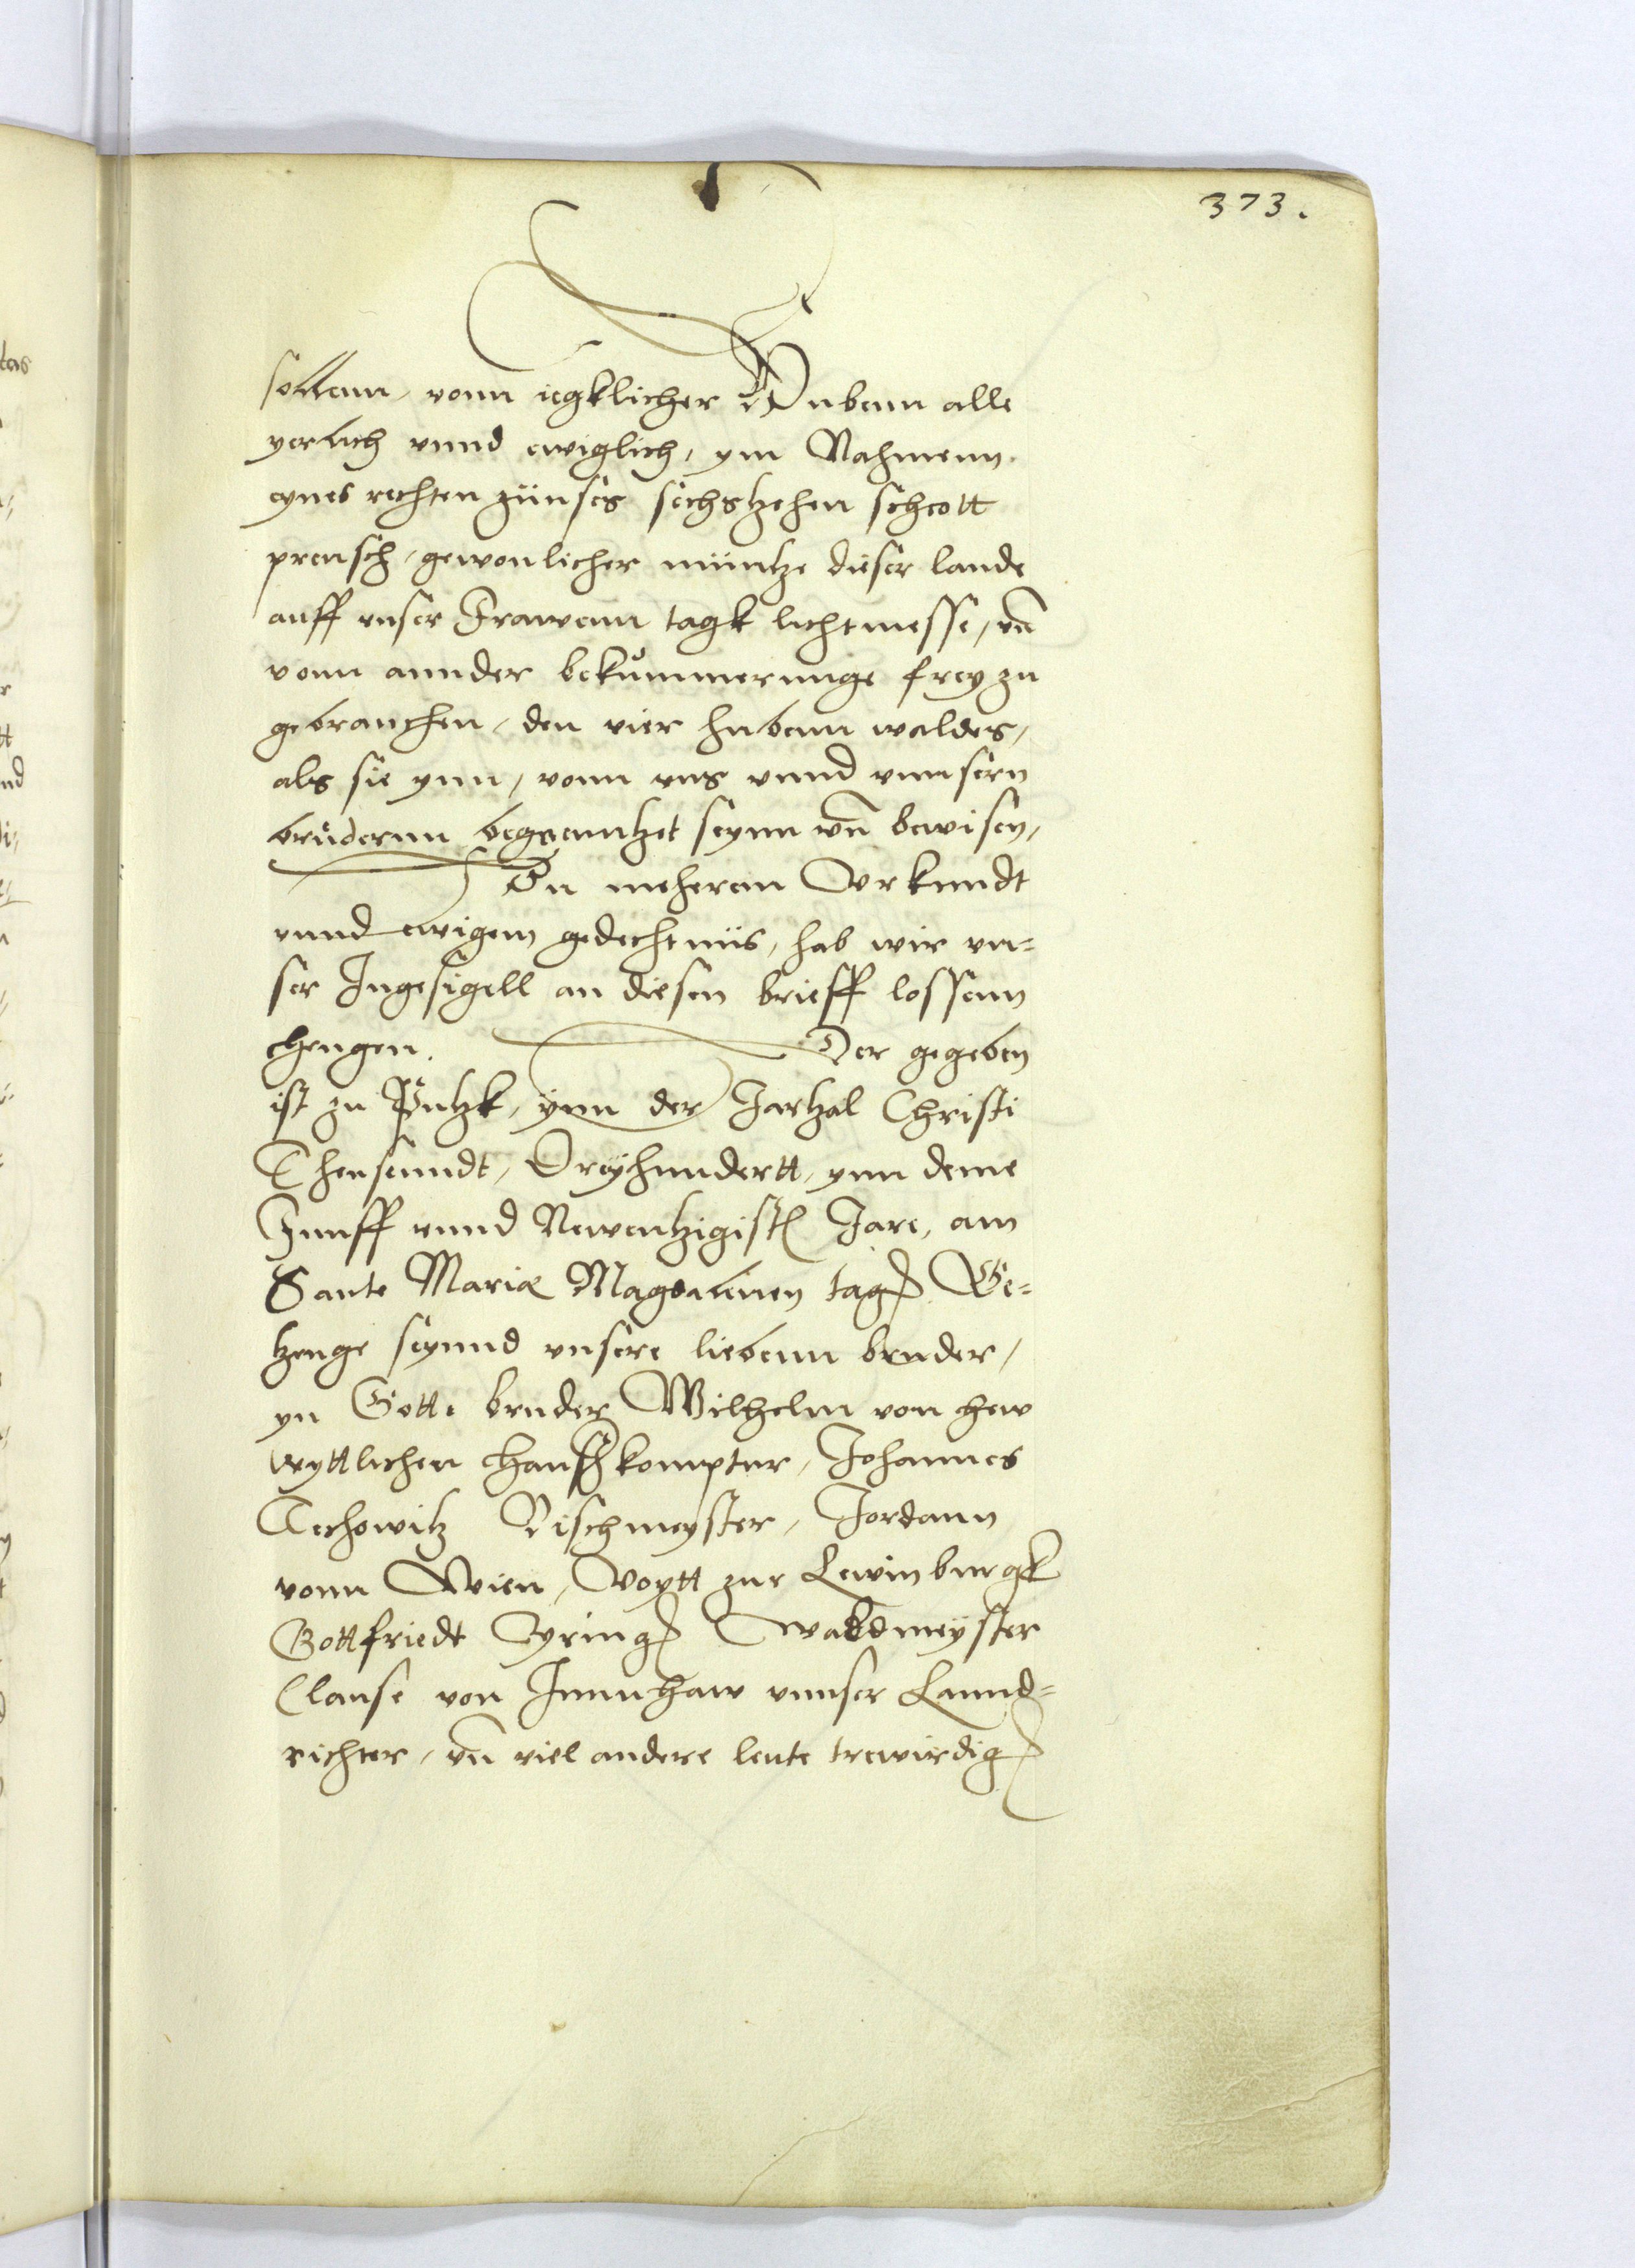 373.
sollenn, vonn iegklicher Hubenn alle
yerlich vnnd ewiglich, ym Nahmenn
eynes rechten zünses sechstzehen schott
preusch, gewonlicher müntze dieser lande
auff vnser Frawenn tagk lichtmesse, vñ
vonn annder bekůmmerunge frey zu
gebrauchen, den vier hubenn waldes,
als sie ynn, vonn vns vnnd vnnsern
brůdernn begrenntzet seynn vñ bewisen,
Zu meheren Vrkundt
vnnd ewigem gedechtnüs, hab wir vn=
ser Ingesigell an diesen brieff lossenn
hengen. Der gegeben
ist zu Putzk, ynn der Jartzal Christi
Thensenndt, Dreyhundertt, ynn deme
Funff vnnd Newentzigisten Jare, am
Sante Mariæ Magdalenen tage, Ge=
tzeuge seynnd vnsere liebenn bruder,
yn Gott, bruder Wilhelm von hew
wyttlichen hauskomptur, Johannes
Techowitz Vischmeyster, Jordann
vonn Wien, Voytt zur Lewinburgk
Gottfriedt Tyring, Waldmeyster
Clause von Innnhaw vnnser Lannd=
richter, vñ viel andere leute trewirdig